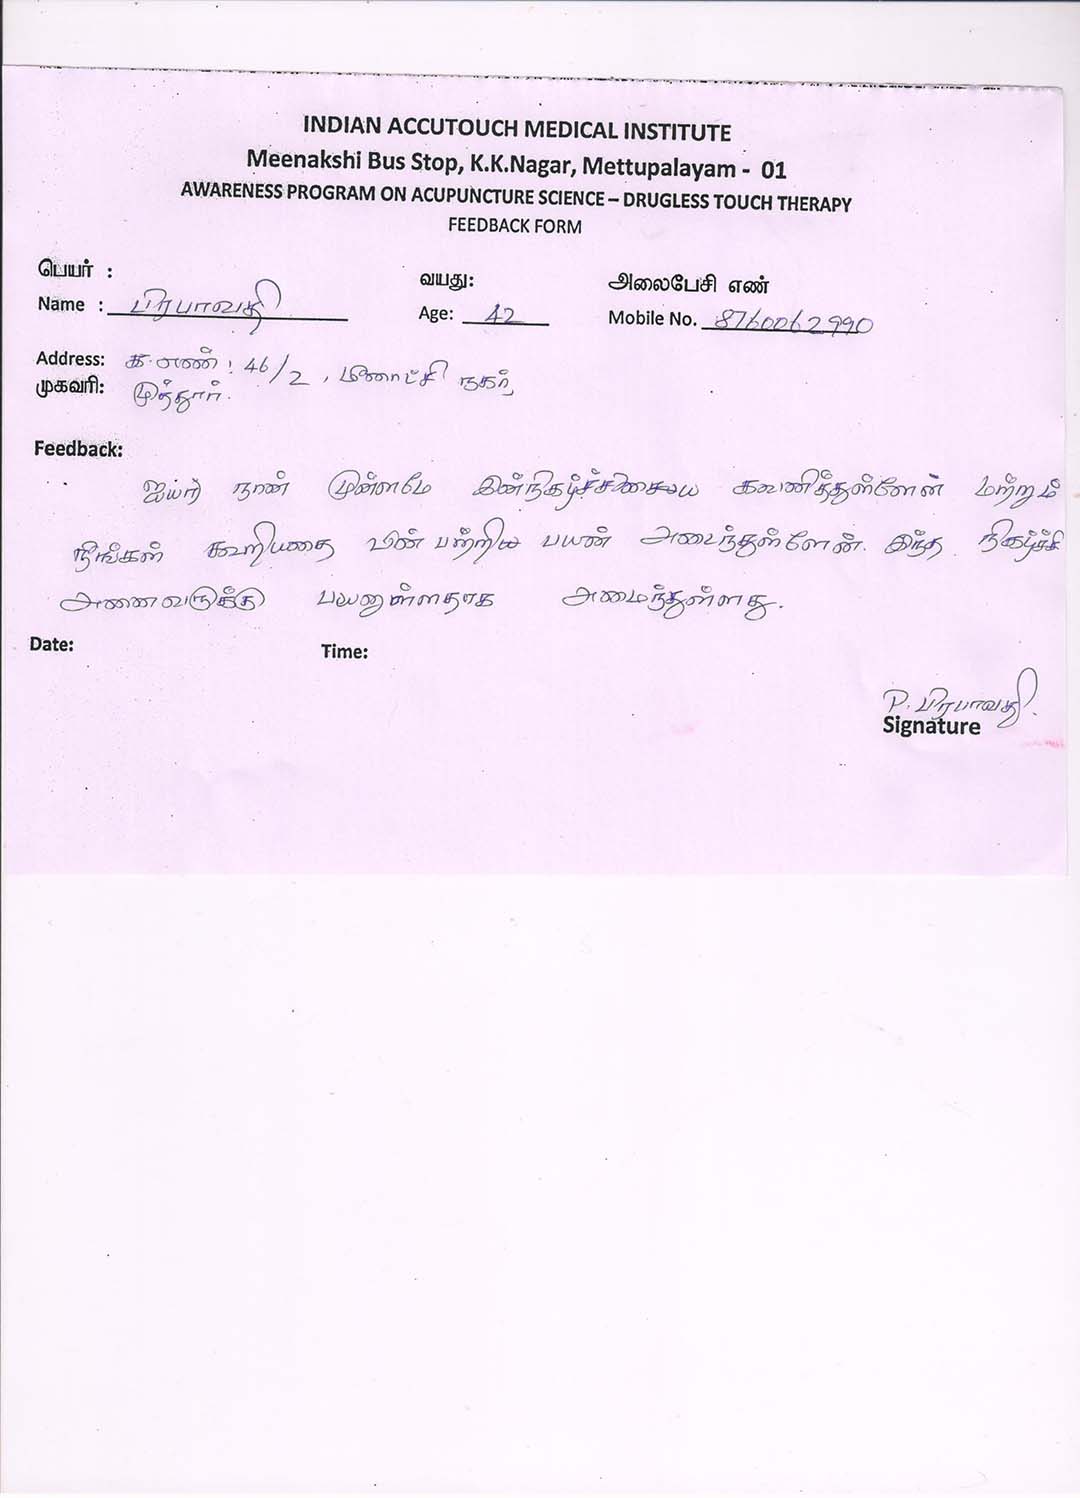 INDIAN ACCUTOUCH MEDICAL INSTITUTE
Meenakshi Bus Stop, K.K.Nagar, Mettupalayam - 01
AWARENESS PROGRAM ON ACUPUNCTURE SCIENCE – DRUGLESS TOUCH THERAPY
FEEDBACK FORM
பெயர் : வயது: அலைபேசி எண்
Name : பிரபாவதி Age: 42 Mobile No. 8760062990
Address: க.எண்: 46/2, மீனாட்சி நகர்,
முகவரி: முத்தூர்.
Feedback:
ஐயா நான் முன்னமே கவனித்துள்ளேன் மற்றும்
நீங்கள் கூறியதை பின் பற்றிய பயண் அடைந்துள்ளேன். இந்த நிகழ்ச்சி
அணைவருக்கு பயனுள்ளதாக அமைந்துள்ளது.
Date: Time:
P. பிரபாவதி.
Signature